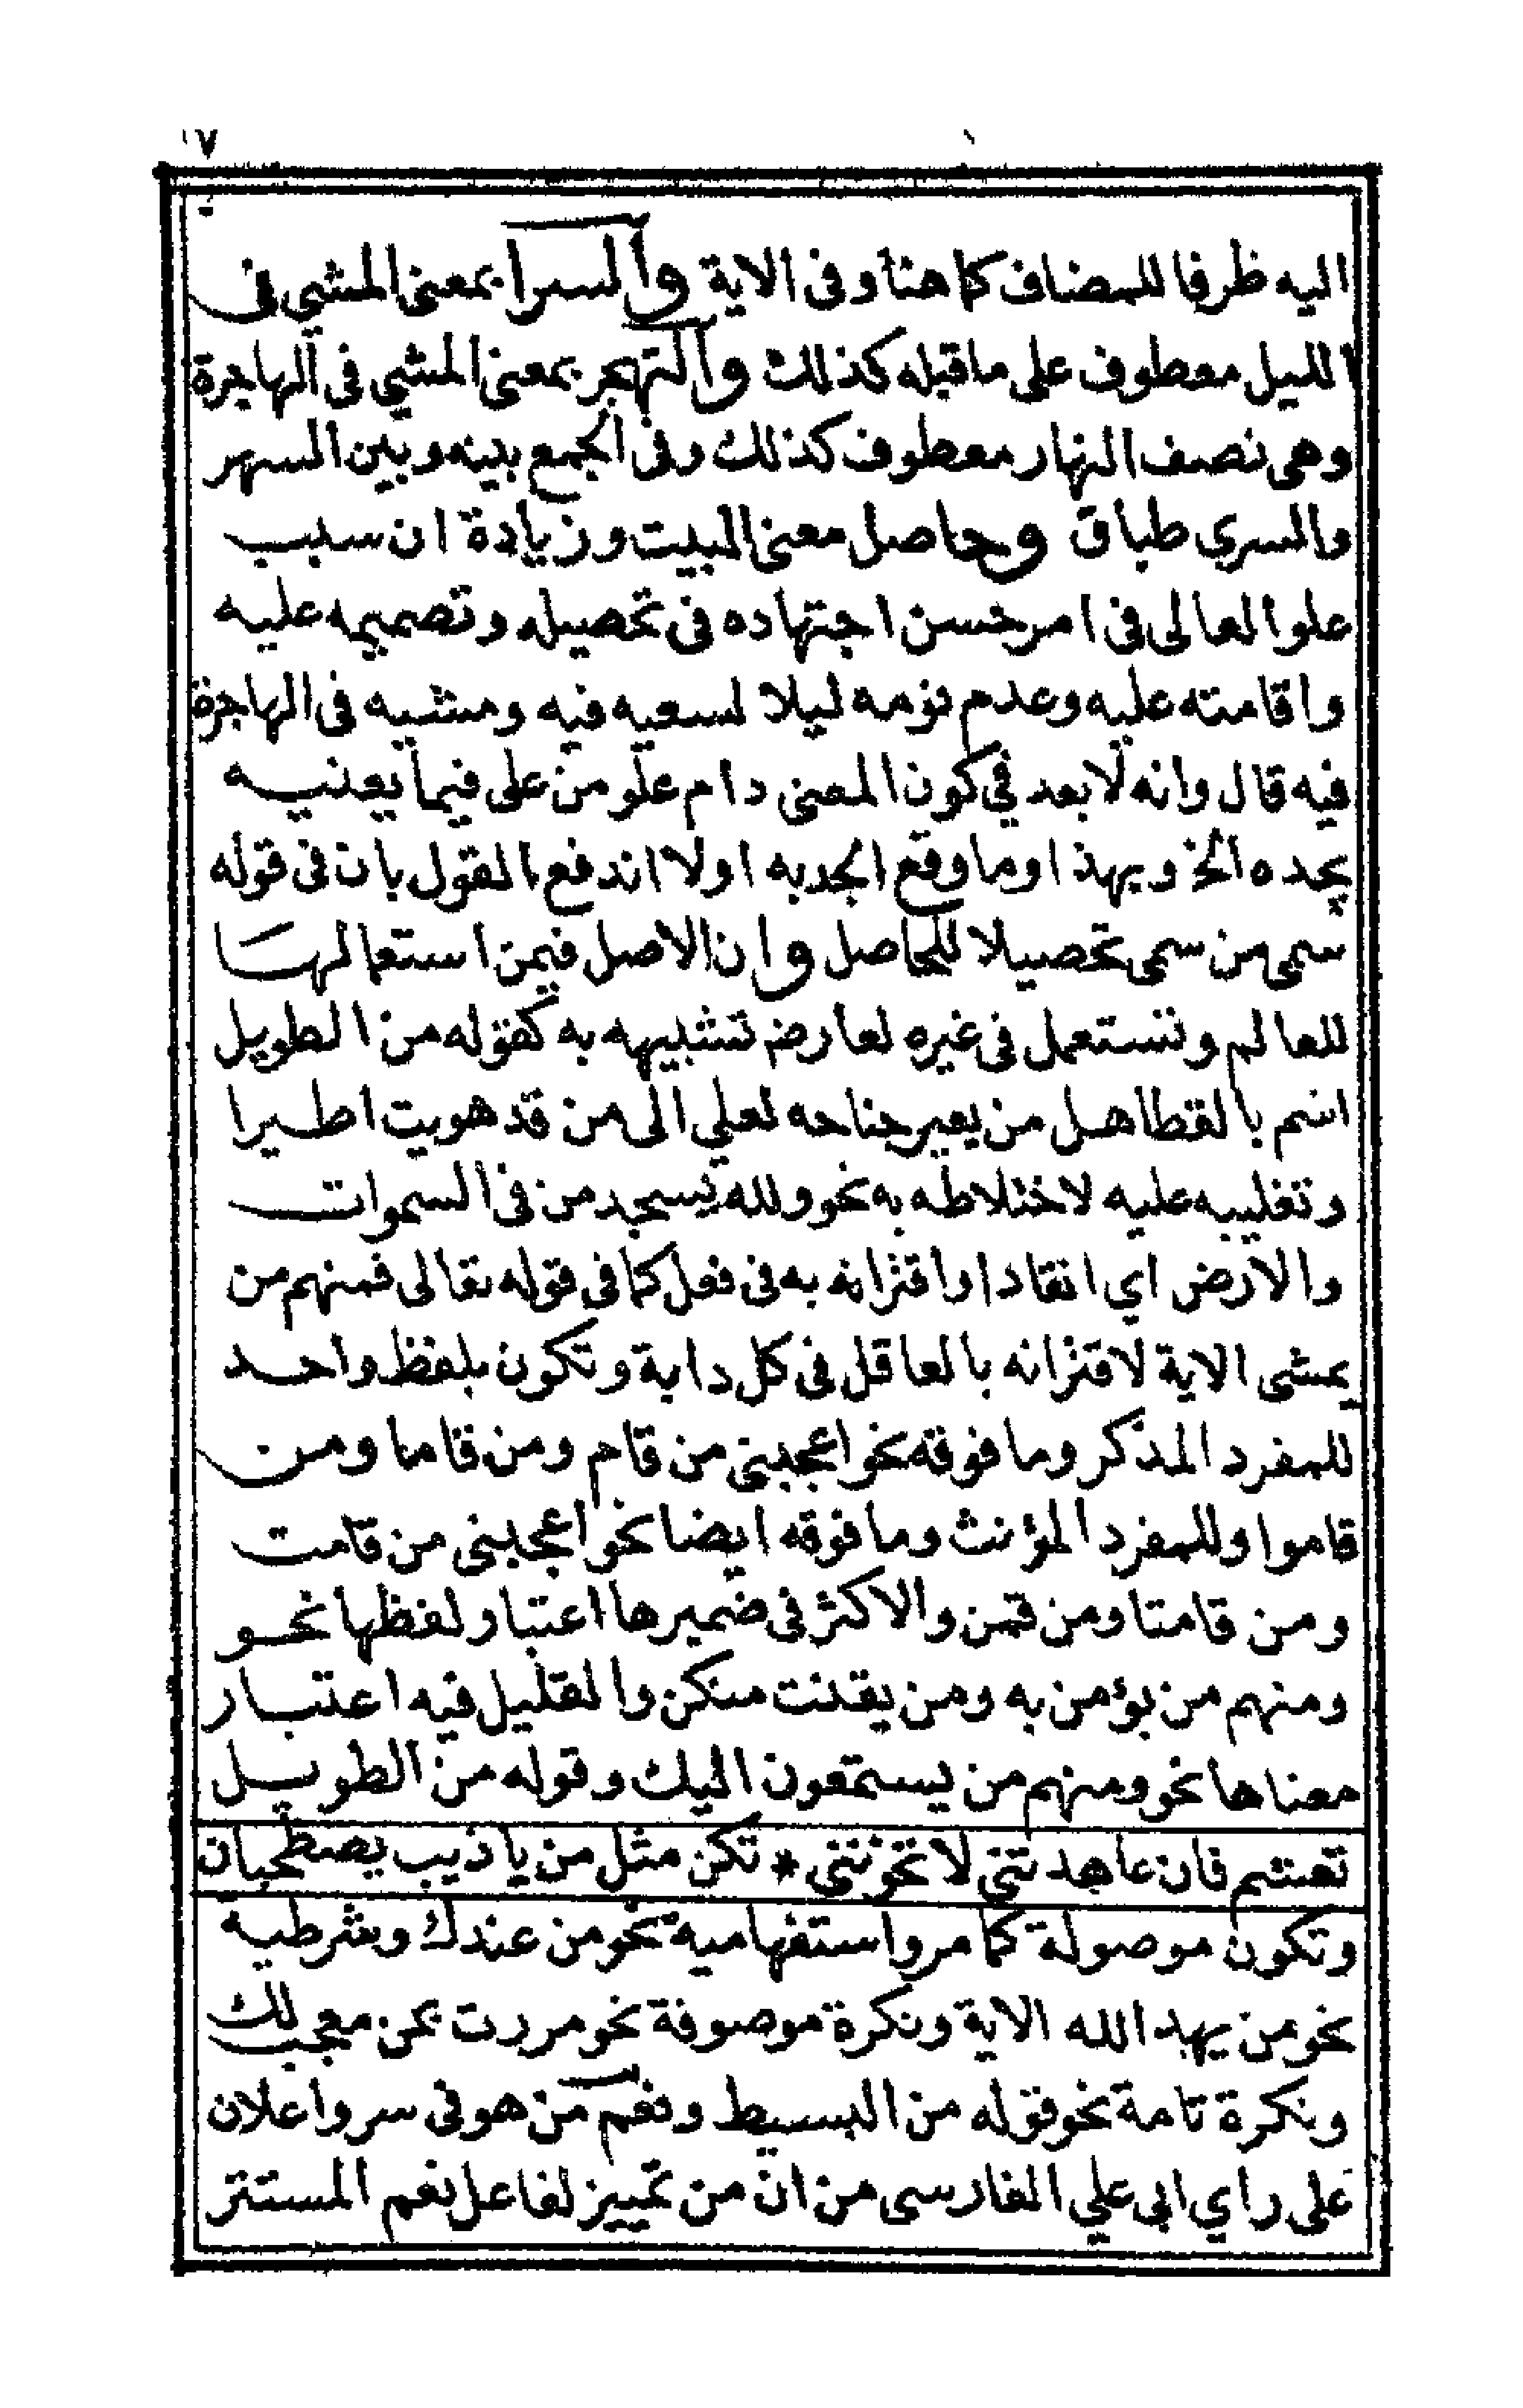 ٧
اليه ظرفا للمضاف كما هنا وفى الاية والسرا بمعنى المشي فى
الليل معطوف على ما قبله كذلك والتهجر بمعنى المشي فى الهاجرة
وهى نصف النهار معطوف كذلك وفى الجمع بينه وبين السهر
والسري طباق وحاصل معنى البيت وزيادة ان سبب
علو العالى فى امر حسن اجتهاده فى تحصيله وتصميمه عليه
واقامته عليه وعدم نومه ليلا لسعيه فيه ومشيه فى الهاجرة
فيه قال وانه لا بعد في كون المعنى دام علو من على فيما يعنيه
بجده الخ وبهذا وما وقع الجد به اولا اندفع القول بان فى قوله
سمى من سمى تحصيلا للحاصل وان الاصل فيمن استعمالها
للعالم وتستعمل فى غيره لعارض تشبيهه به كقوله من الطويل
اسم بالقطا هل من يعير جناحه لعلي الى من قد هويت اطيرا
وتغليبه عليه لاختلاطه به نحو ولله يسجد من فى السموات
والارض اي انقادا واقترانه به فى فعل كما فى قوله تعالى فمنهم من
يمشى الاية لاقترانه بالعاقل فى كل دابة وتكون بلفظ واحد
للمفرد المذكر وما فوقه نحو اعجبنى من قام ومن قاما ومن
قاموا وللمفرد المؤنث وما فوقه ايضا نحو اعجبنى من قامت
ومن قامتا ومن قمن والاكثر فى ضميرها اعتبار لفظها نحو
ومنهم من يؤمن به ومن يقنت منكن والقليل فيه اعتبار
معناها نحو ومنهم من يستمعون اليك وقوله من الطويل
تعشم فان عاهدتني لا تخونني * تكن مثل من يا ذيب يصطحبان
وتكون موصولة كما مر واستفهامية نحو من عندك وشرطية
نحو من يهد الله الاية ونكرة موصوفة نحو مررت بمن معجب لك
ونكرة تامة نحو قوله من البسيط ونعم من هو فى سر واعلان
على راي ابى علي الفارسى من ان من تمييز لفاعل نعم المستتر